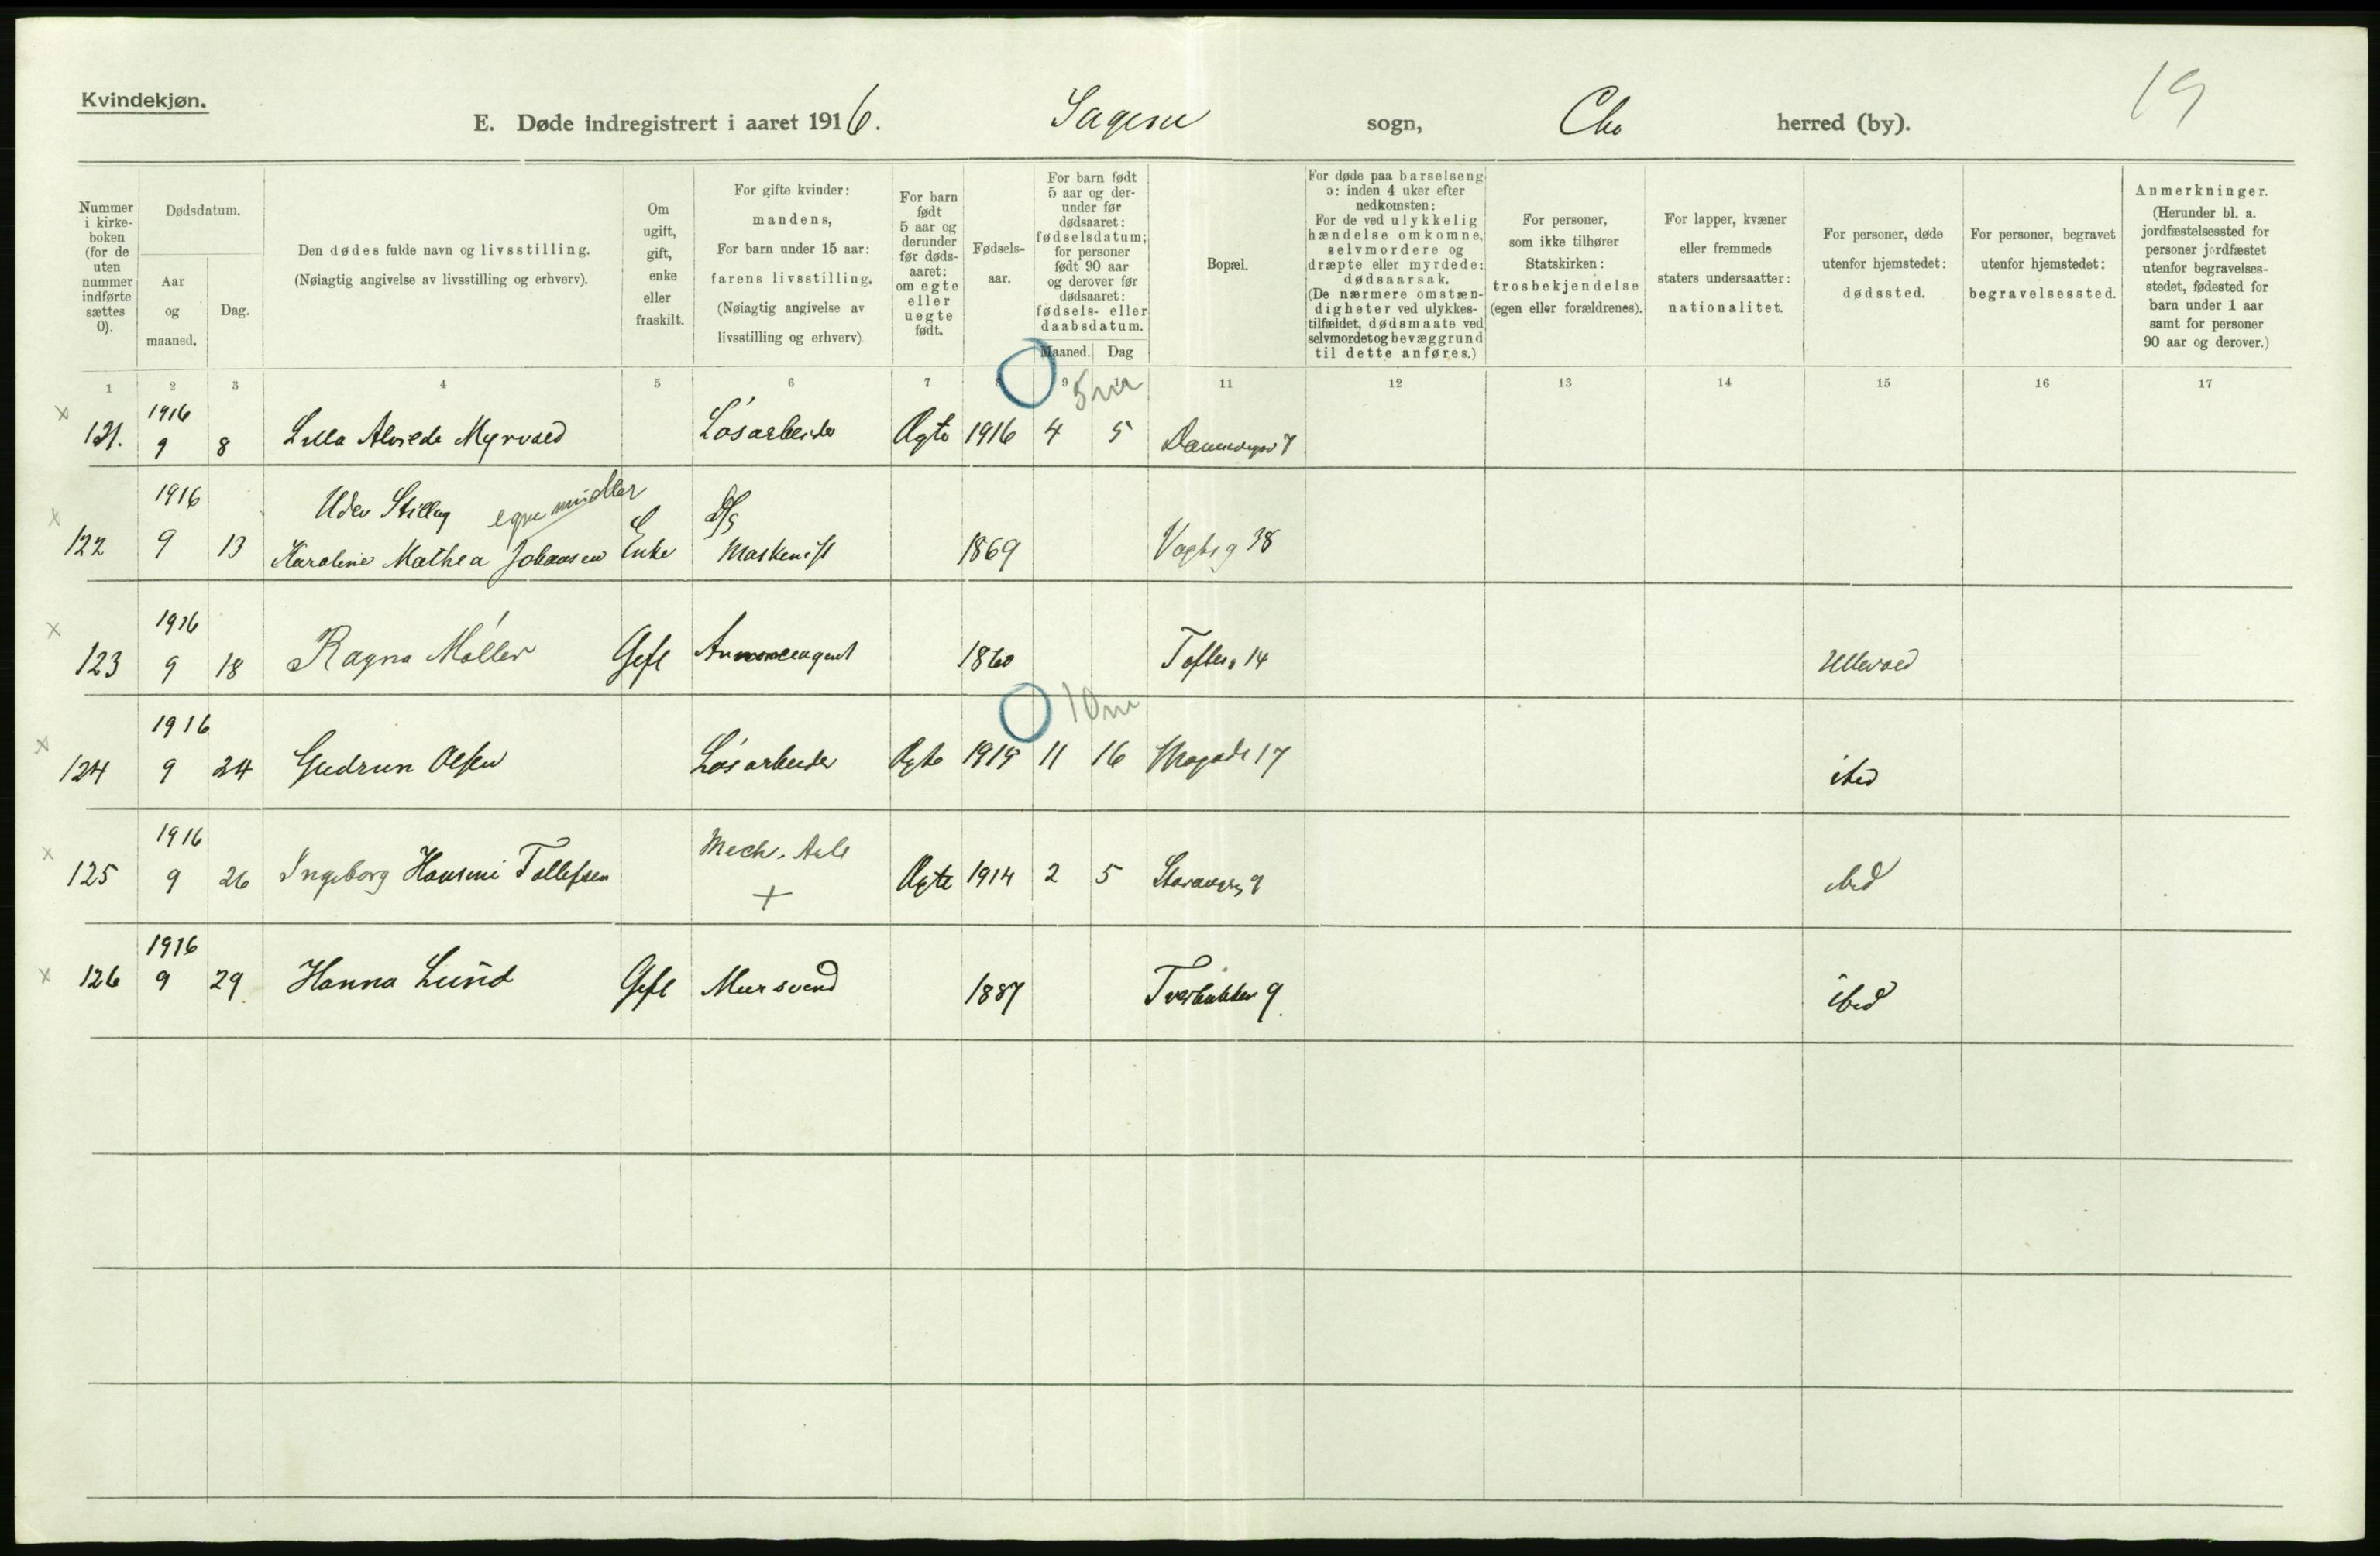 Kvindekjøn.
19
E. Døde indregistrert i aaret 1916. Sagene sogn, Chr herred (by).
Nummer i kirke-boken (for de uten nummer indførte sættes 0).
Dødsdatum.
Aar og maaned.
Dag.
Den dødes fulde navn og livsstilling.
(Nøiagtig angivelse av livsstilling og erhverv).
Om ugift, gift, enke eller fraskilt.
For gifte kvinder: mandens,
For barn under 15 aar: farens livsstilling.
(Nøiagtig angivelse av livsstilling og erhverv)
For barn født 5 aar og derunder før døds-aaret: om egte eller uegte født.
Fødsels-aar.
For barn født 5 aar og der-under før dødsaaret: fødselsdatum; for personer født 90 aar og derover før dødsaaret: fødsels- eller daabsdatum.
Maaned. Dag
Bopæl.
For døde paa barselseng ɔ: inden 4 uker efter nedkomsten:
For de ved ulykkelig hændelse omkomne, selvmordere og dræpte eller myrdede: dødsaarsak.
(De nærmere omstæn-digheter ved ulykkes-tilfældet, dødsmaate ved selvmordet og bevæggrund til dette anføres.)
For personer, som ikke tilhører Statskirken: trosbekjendelse (egen eller forældrenes).
For lapper, kvæner eller fremmede staters undersaatter: nationalitet.
For personer, døde utenfor hjemstedet: dødssted.
For personer, begravet utenfor hjemstedet: begravelsessted.
Anmerkninger.
(Herunder bl. a. jordfæstelsessted for personer jordfæstet utenfor begravelses-stedet, fødested for barn under 1 aar samt for personer 90 aar og derover.)
1 2 3 4 5 6 7 8 9 11 12 13 14 15 16 17
5 m
x 121. 1916 9 8 Lilla Alvilde Myrvold Løsarbeider Ægte 1916 4 5 7
x 122 1916 9 13 Uden Stilling egne midler
Karoline Mathea Johansen Enke Maskinist 1869 Vogtsg 38
x 123 1916 9 18 Ragna Møller Gift Annonceagent 1860 Toftesg 14 Ullevaal
10 m
x 124 1916 9 24 Gudrun Olsen Løsarbeider Ægte 1915 11 16 17 ibid
x 125 1916 9 26 Ingeborg Hansine Tollefsen Mech. Arb + Ægte 1914 2 5 Stavangerg 9 ibid
x 126 1916 9 29 Hanna Lund Gift Mursvend 1887 Tverbakken 9. ibid